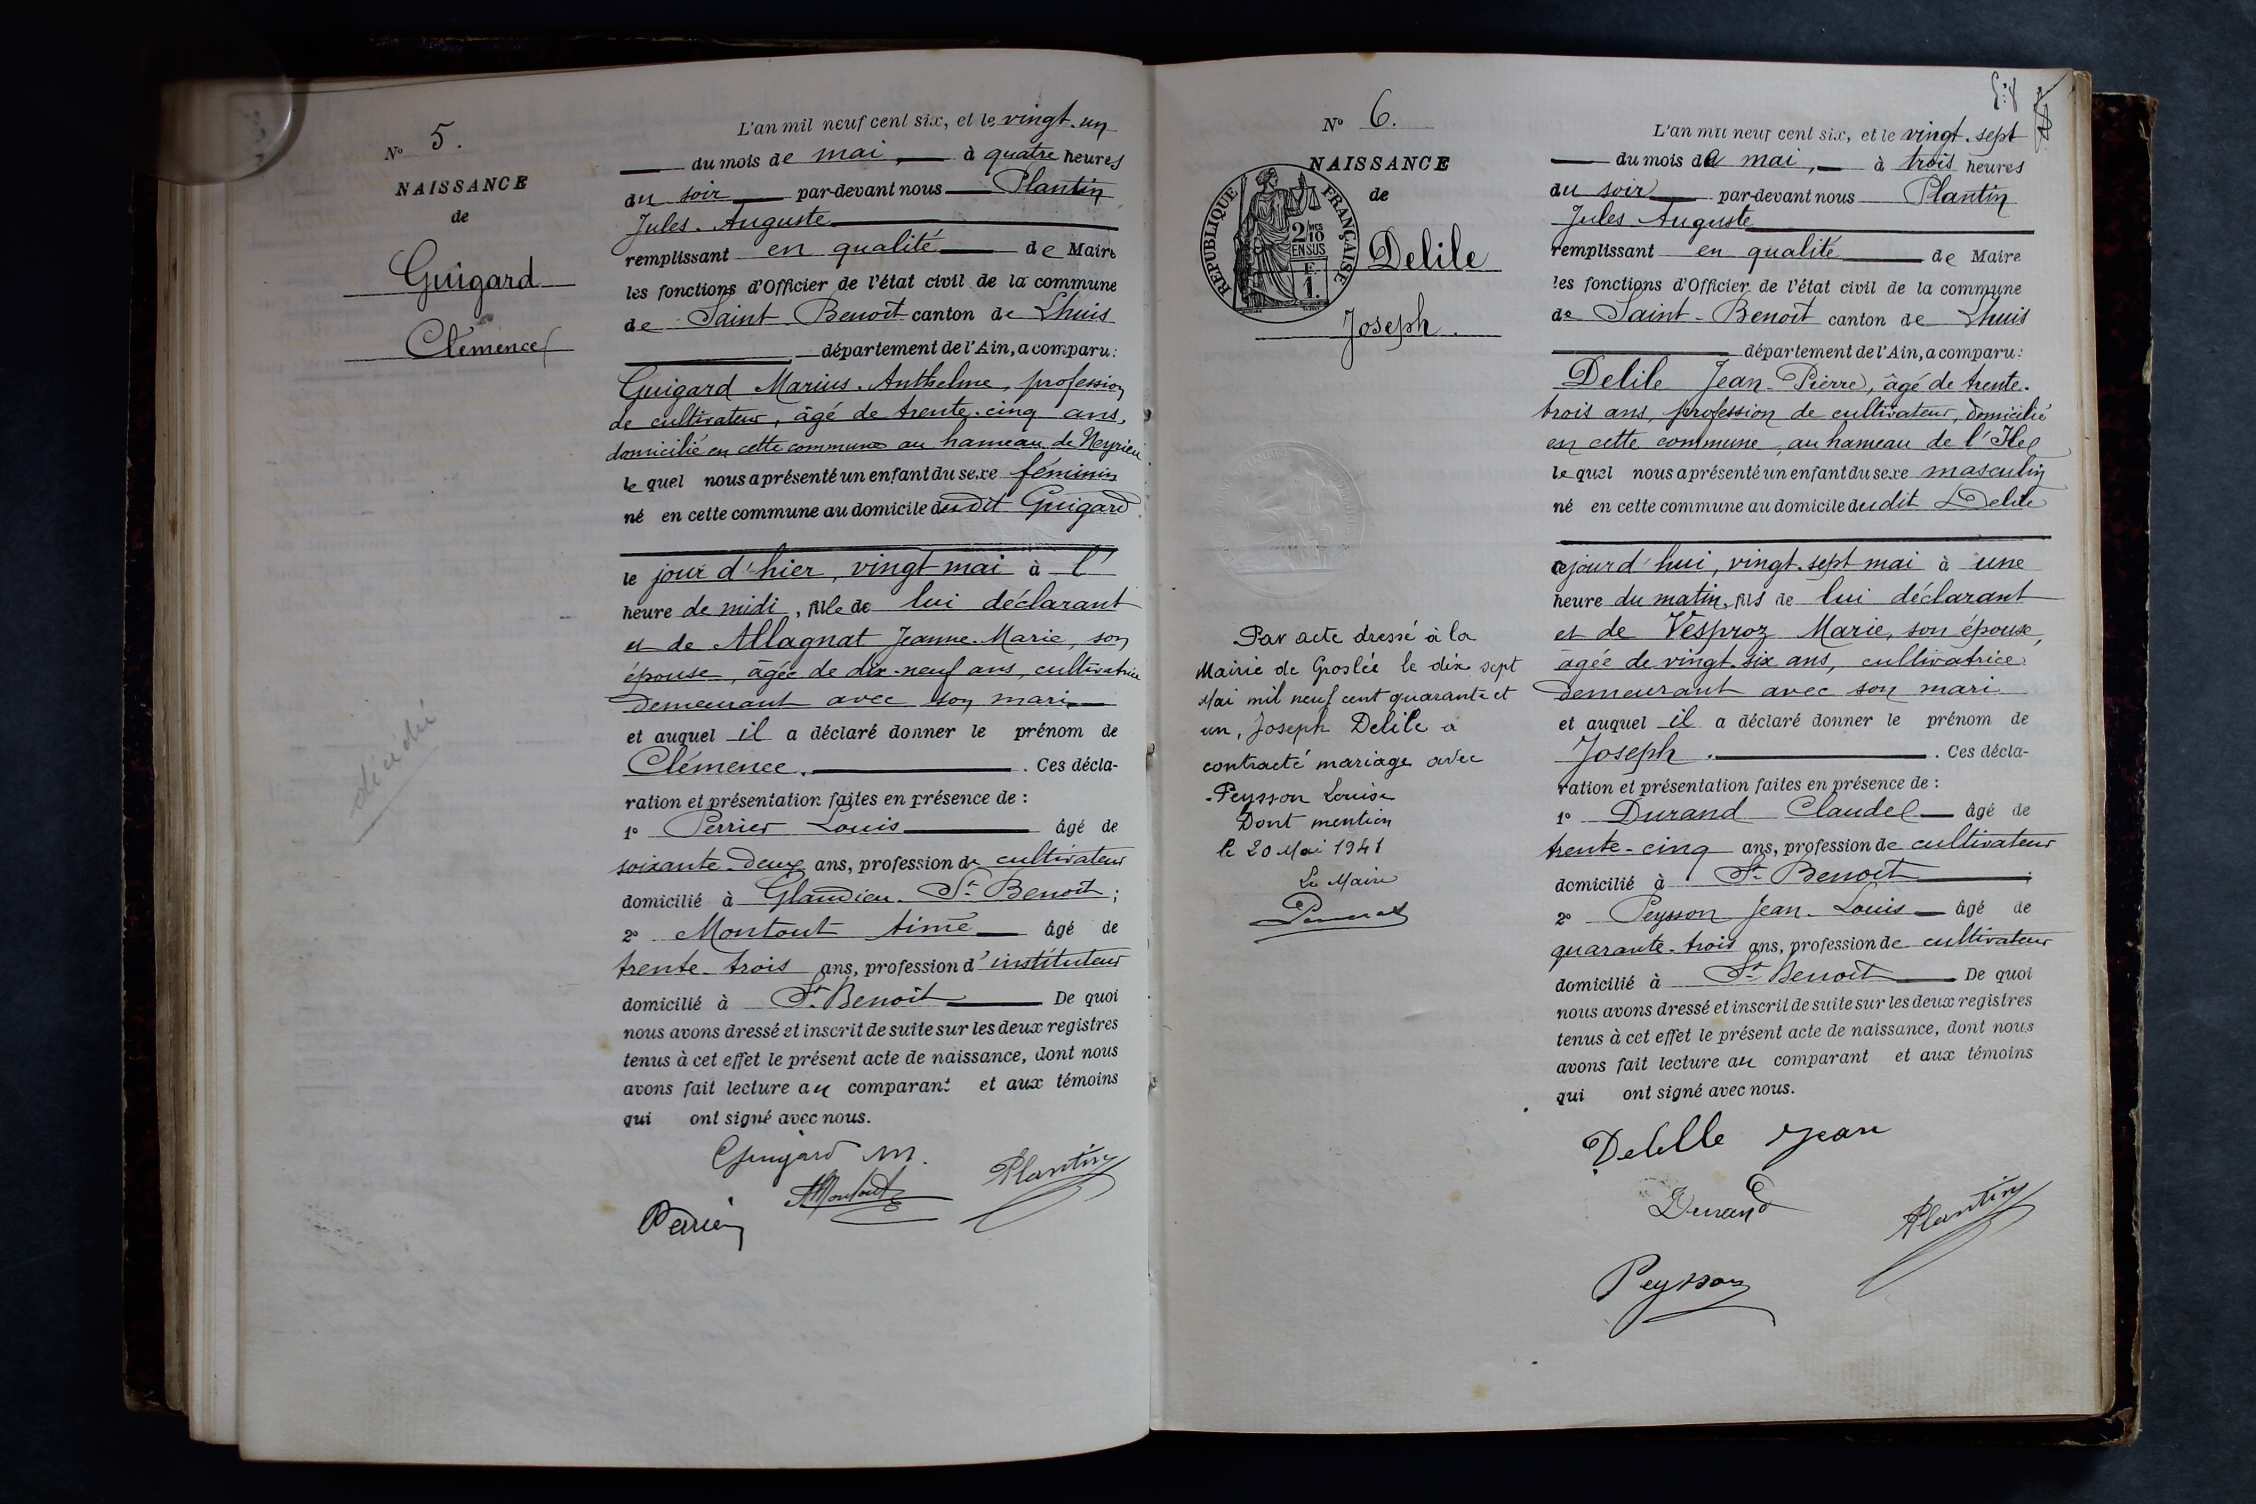 N° 5.
NAISSANCE
de
Guigard
Clémence
décédée
L'an mil neuf cent six, et le vingt-un
du mois de mai, à quatre heures
du soir par-devant nous Plantin
Jules-Auguste
remplissant en qualité de Maire
les fonctions d'Officier de l'état civil de la commune
de Saint-Benoît canton de Lhuis
département de l'Ain, a comparu:
Guigard Marius-Anthelme, profession
de cultivateur, âgé de trente-cinq ans,
domicilié en cette commune au hameau de Neyrieu
le quel nous a présenté un enfant du sexe féminin
né en cette commune au domicile dudit Guigard
le jour d'hier, vingt mai à l'
heure de midi, fille de lui déclarant
et de Allagnat Jeanne-Marie, son
épouse, âgée de dix-neuf ans, cultivatrice
demeurant avec son mari
et auquel il a déclaré donner le prénom de
Clémence. . Ces décla-
ration et présentation faites en présence de :
1° Perrier Louis âgé de
soixante-deux ans, profession de cultivateur
domicilié à Glandieu-St Benoît ;
2° Montout Aimé âgé de
trente-trois ans, profession d'instituteur
domicilié à St Benoît De quoi
nous avons dressé et inscrit de suite sur les deux registres
tenus à cet effet le présent acte de naissance, dont nous
avons fait lecture au comparant et aux témoins
qui ont signé avec nous.
Guigard M.
AMontout Plantin
Perrier
N° 6.
NAISSANCE
de
RÉPUBLIQUE FRANÇAISE
2/10
EN SUS
F.
1.
Delile
Joseph.
Par acte dressé à la
Mairie de Groslée le dix sept
Mai mil neuf cent quarante et
un, Joseph Delile a
contracté mariage avec
Peysson Louise
Dont mention
le 20 Mai 1941
Le Maire
L'an mil neuf cent six, et le vingt-sept
du mois de mai, à trois heures
du soir par-devant nous Plantin
Jules-Auguste
remplissant en qualité de Maire
les fonctions d'Officier de l'état civil de la commune
de Saint-Benoît canton de Lhuis
département de l'Ain, a comparu:
Delile Jean-Pierre, âgé de trente-
trois ans, profession de cultivateur, domicilié
en cette commune, au hameau de l'Ile
le quel nous a présenté un enfant du sexe masculin
né en cette commune au domicile dudit Delile
cejourd'hui, vingt-sept mai à une
heure du matin, fils de lui déclarant
et de Vesproz Marie, son épouse,
âgée de vingt-six ans, cultivatrice
demeurant avec son mari
et auquel il a déclaré donner le prénom de
Joseph. . Ces décla-
ration et présentation faites en présence de :
1° Durand Claude âgé de
trente-cinq ans, profession de cultivateur
domicilié à St Benoît ;
2° Peysson Jean-Louis âgé de
quarante-trois ans, profession de cultivateur
domicilié à St Benoît De quoi
nous avons dressé et inscrit de suite sur les deux registres
tenus à cet effet le présent acte de naissance, dont nous
avons fait lecture au comparant et aux témoins
qui ont signé avec nous.
Delille Jean
Durand
Plantin
Peysson